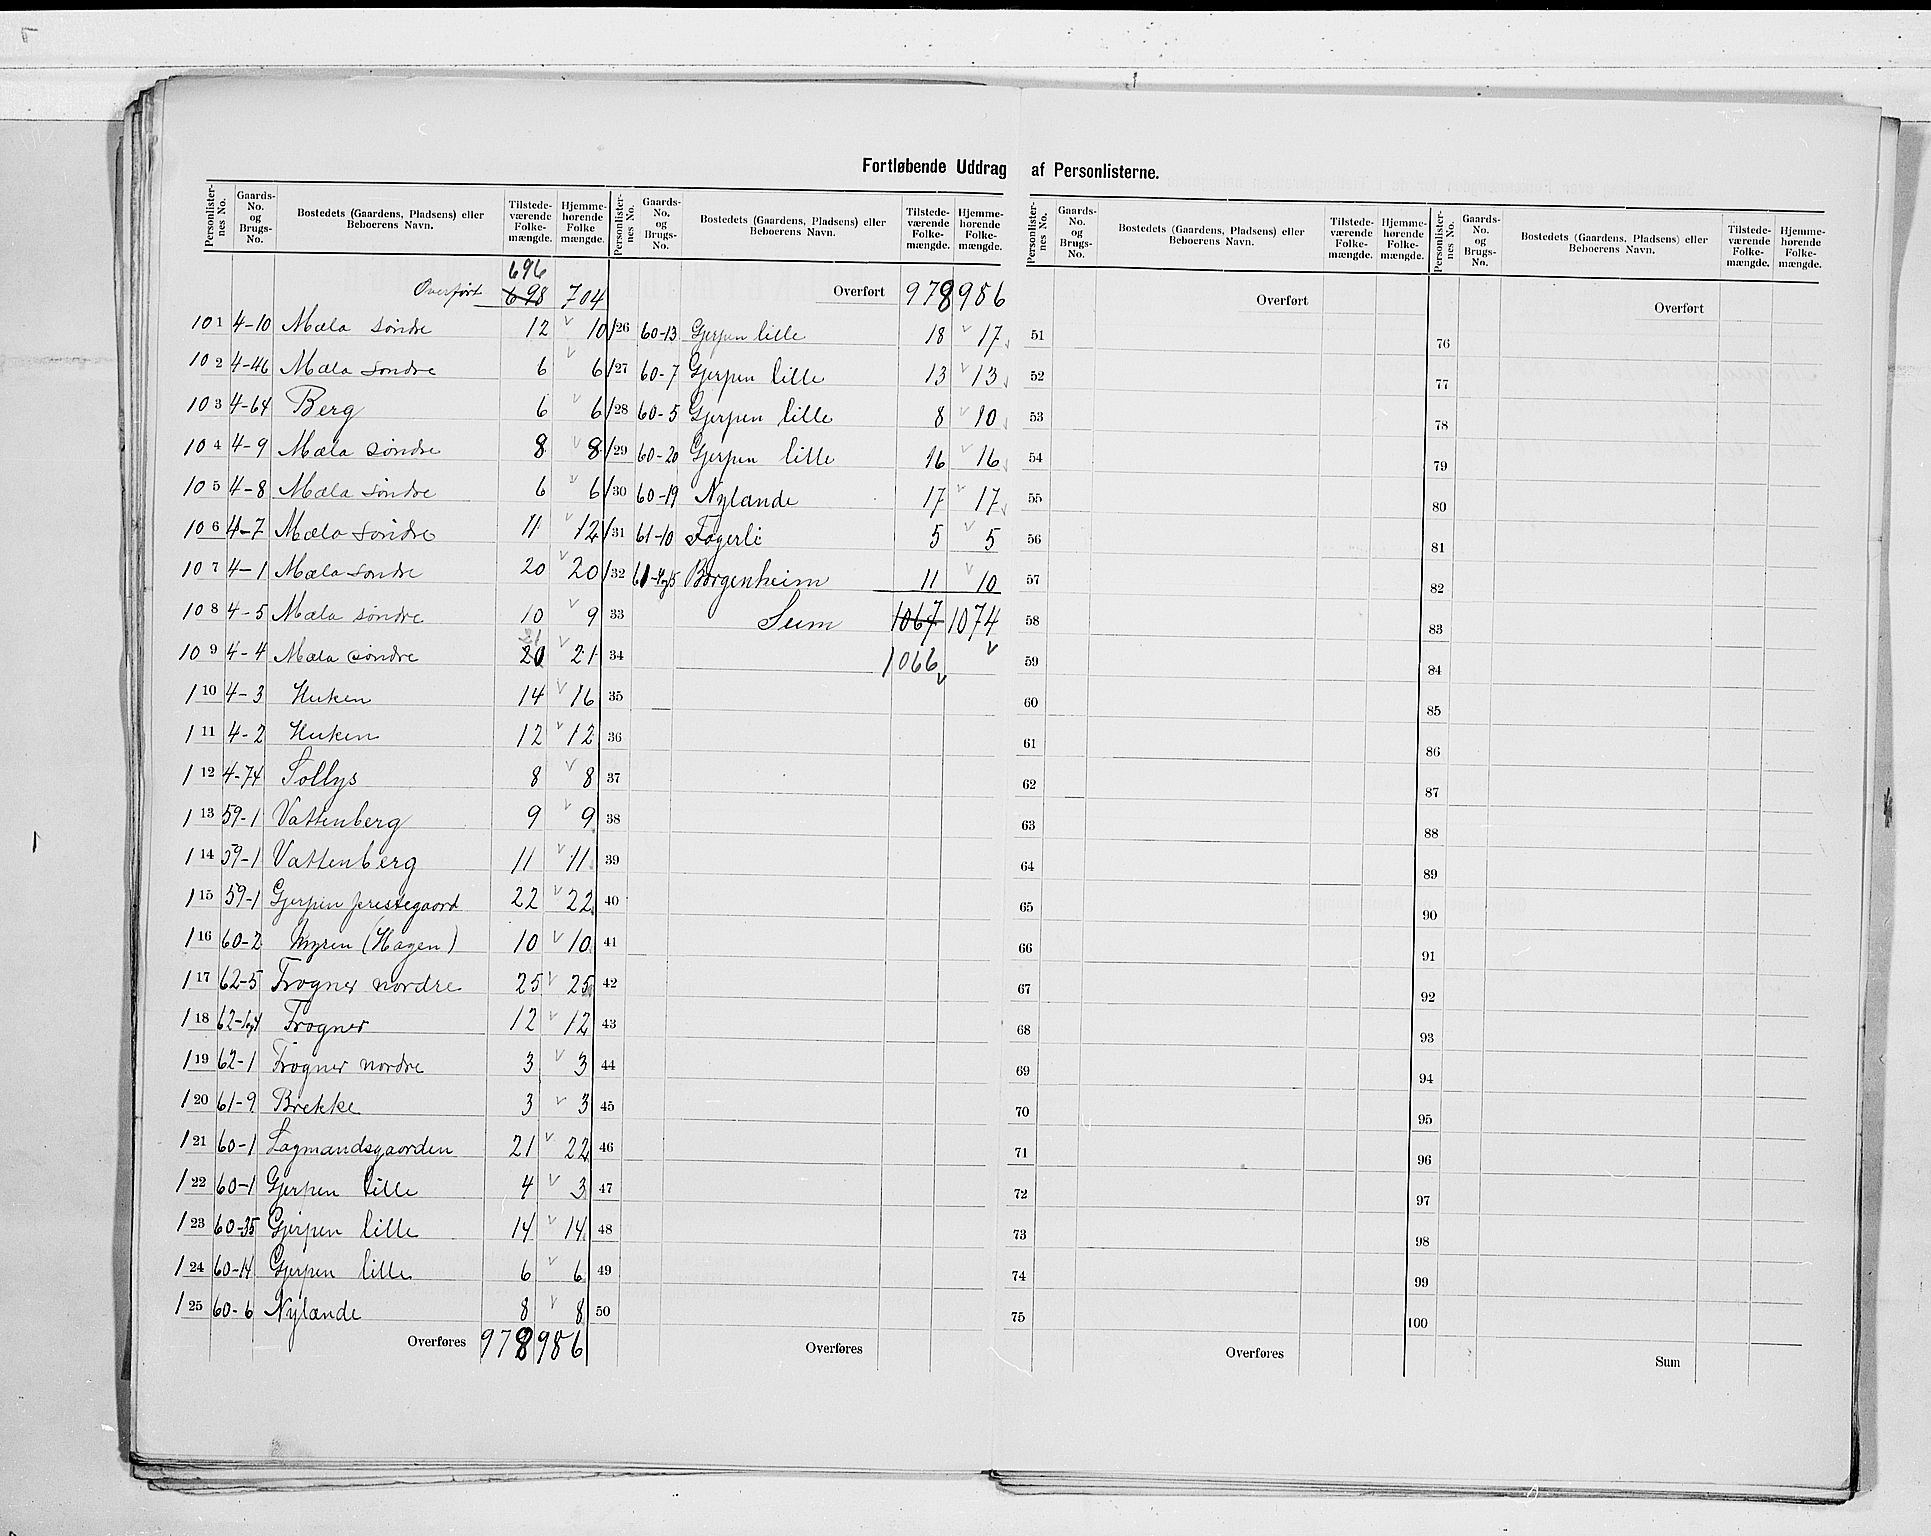 Fortløbende Uddrag af Personlisterne.
Personlisternes No. | Gaards-No. og Brugs-No. | Bostedets (Gaardens, Pladsens) eller Beboerens Navn. | Tilstedeværende Folkemængde. | Hjemmehørende Folkemængde.
696
Overført 698 704
101 4-10 Mæla søndre 12 10
102 4-46 Mæla søndre 6 6
103 4-64 Berg 6 6
104 4-9 Mæla søndre 8 8
105 4-8 Mæla søndre 6 6
106 4-7 Mæla søndre 11 12
107 4-1 Mæla søndre 20 20
108 4-5 Mæla søndre 10 9
109 4-4 Mæla søndre 20 21
110 4-3 Huken 14 16
111 4-2 Huken 12 12
112 4-74 Sollys 8 8
113 59-1 Vattenberg 9 9
114 59-1 Vattenberg 11 11
115 59-1 Gjerpen prestegaard 22 22
116 60-2 Myren (Hagen) 10 10
117 62-5 Frogner nordre 25 25
118 62-1og4 Frogner 12 12
119 62-1 Frogner nordre 3 3
120 61-9 Brekke 3 3
121 60-1 Lagmandsgaarden 21 22
122 60-1 Gjerpen lille 4 3
123 60-35 Gjerpen lille 14 14
124 60-14 Gjerpen lille 6 6
125 60-6 Nylænde 8 8
Overføres 978 986
Personlisternes No. | Gaards-No. og Brugs-No. | Bostedets (Gaardens, Pladsens) eller Beboerens Navn. | Tilstedeværende Folkemængde. | Hjemmehørende Folkemængde.
Overført 978 986
126 60-13 Gjerpen lille 18 17
127 60-7 Gjerpen lille 13 13
128 60-5 Gjerpen lille 8 10
129 60-20 Gjerpen lille 16 16
130 60-19 Nylænde 17 17
131 61-10 Fagerli 5 5
132 Borgenheim 11 10
33 Sum 1067 1074
34 1066
35
36
37
38
39
40
41
42
43
44
45
46
47
48
49
50
Overføres
Personlisternes No. | Gaards-No. og Brugs-No. | Bostedets (Gaardens, Pladsens) eller Beboerens Navn. | Tilstedeværende Folkemængde. | Hjemmehørende Folkemængde.
Overført
51
52
53
54
55
56
57
58
59
60
61
62
63
64
65
66
67
68
69
70
71
72
73
74
75
Overføres
Personlisternes No. | Gaards-No. og Brugs-No. | Bostedets (Gaardens, Pladsens) eller Beboerens Navn. | Tilstedeværende Folkemængde. | Hjemmehørende Folkemængde.
Overført
76
77
78
79
80
81
82
83
84
85
86
87
88
89
90
91
92
93
94
95
96
97
98
99
100
Sum